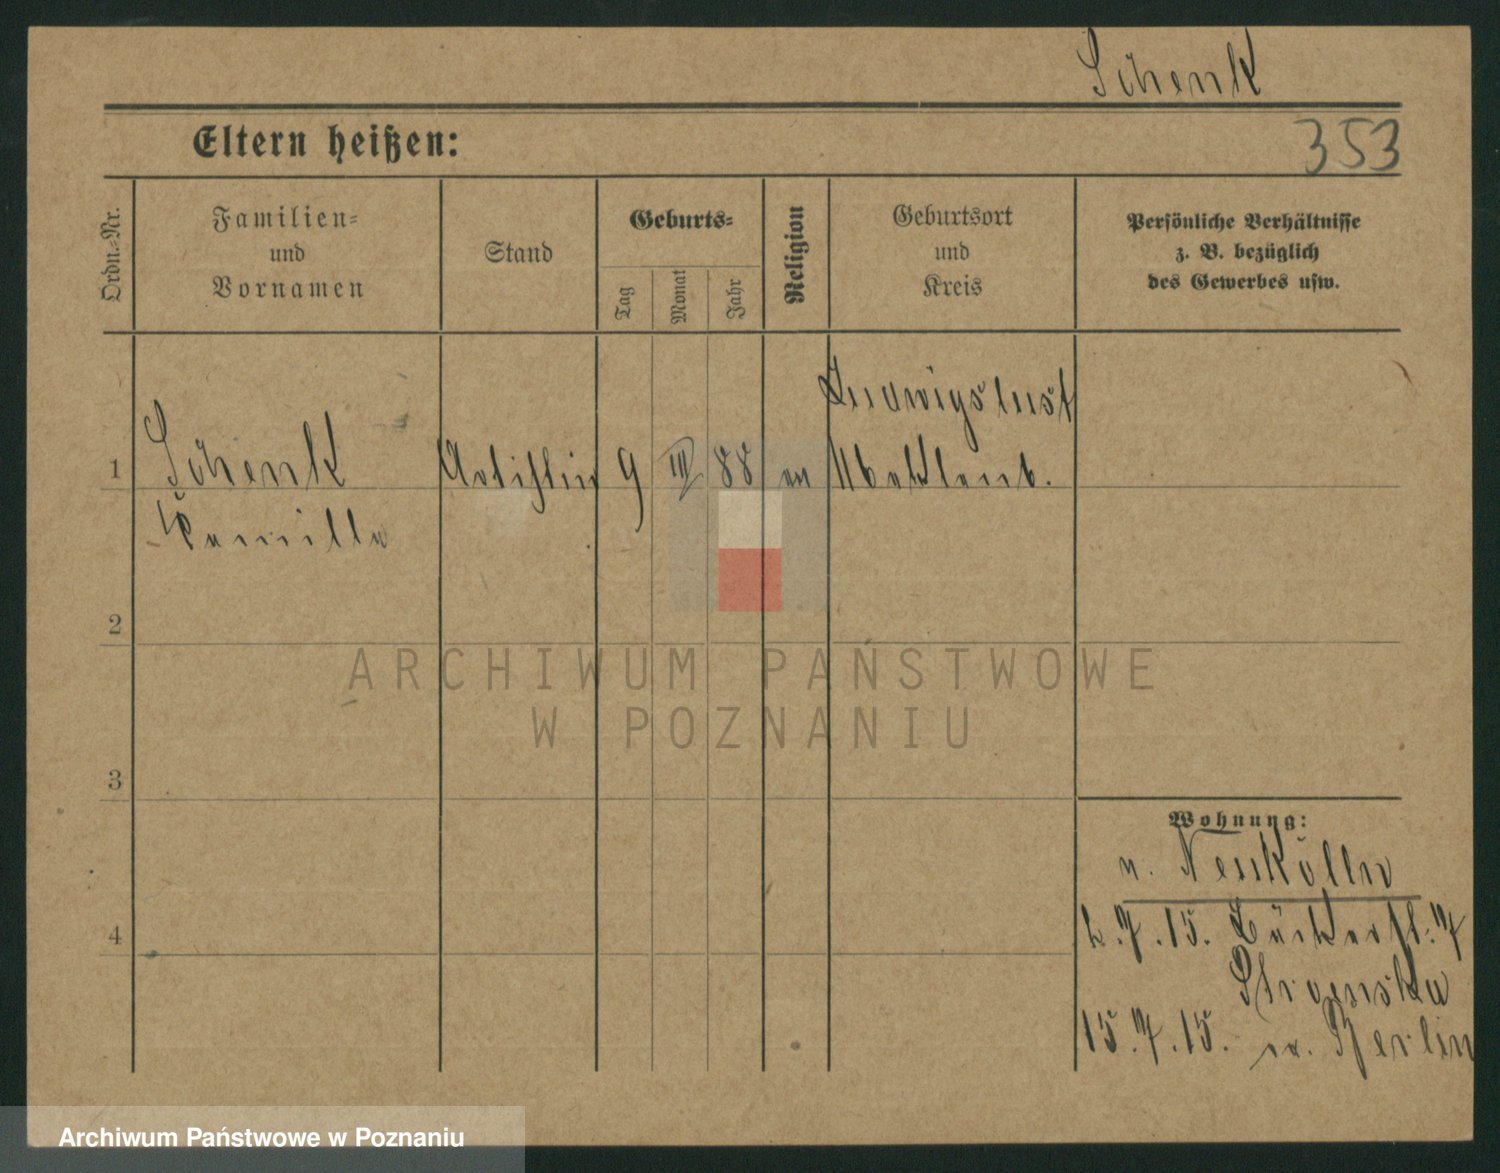 Schenk
Eltern heißen:
353
Ordn.-Nr.
Familien-
und
Vornamen
Stand
Geburts-
Tag
Monat
Jahr
Religion
Geburtsort
und
Kreis
Persönliche Verhältnisse
z. B. bezüglich
des Gewerbes usw.
Ludwigslust
1 Schenk Artistin 9 III 88 ev Meklenb.
Camilla
2
3
4
Wohnung:
v. Neukölln
2.7.15. Bäckerst. 7
15.7.15. n. Berlin
ARCHIWUM PAŃSTWOWE
W POZNANIU
Archiwum Państwowe w Poznaniu